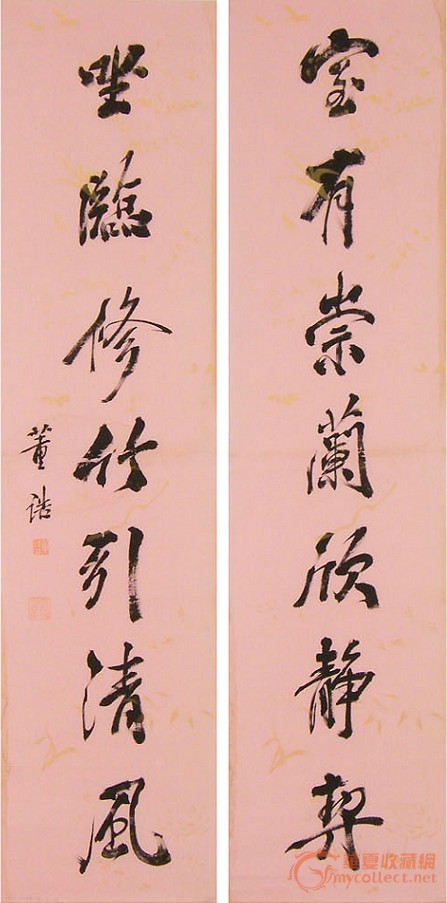 室有崇蘭欣静契
坐臨修竹引清風
董誥
華夏收藏網
mycollect.net